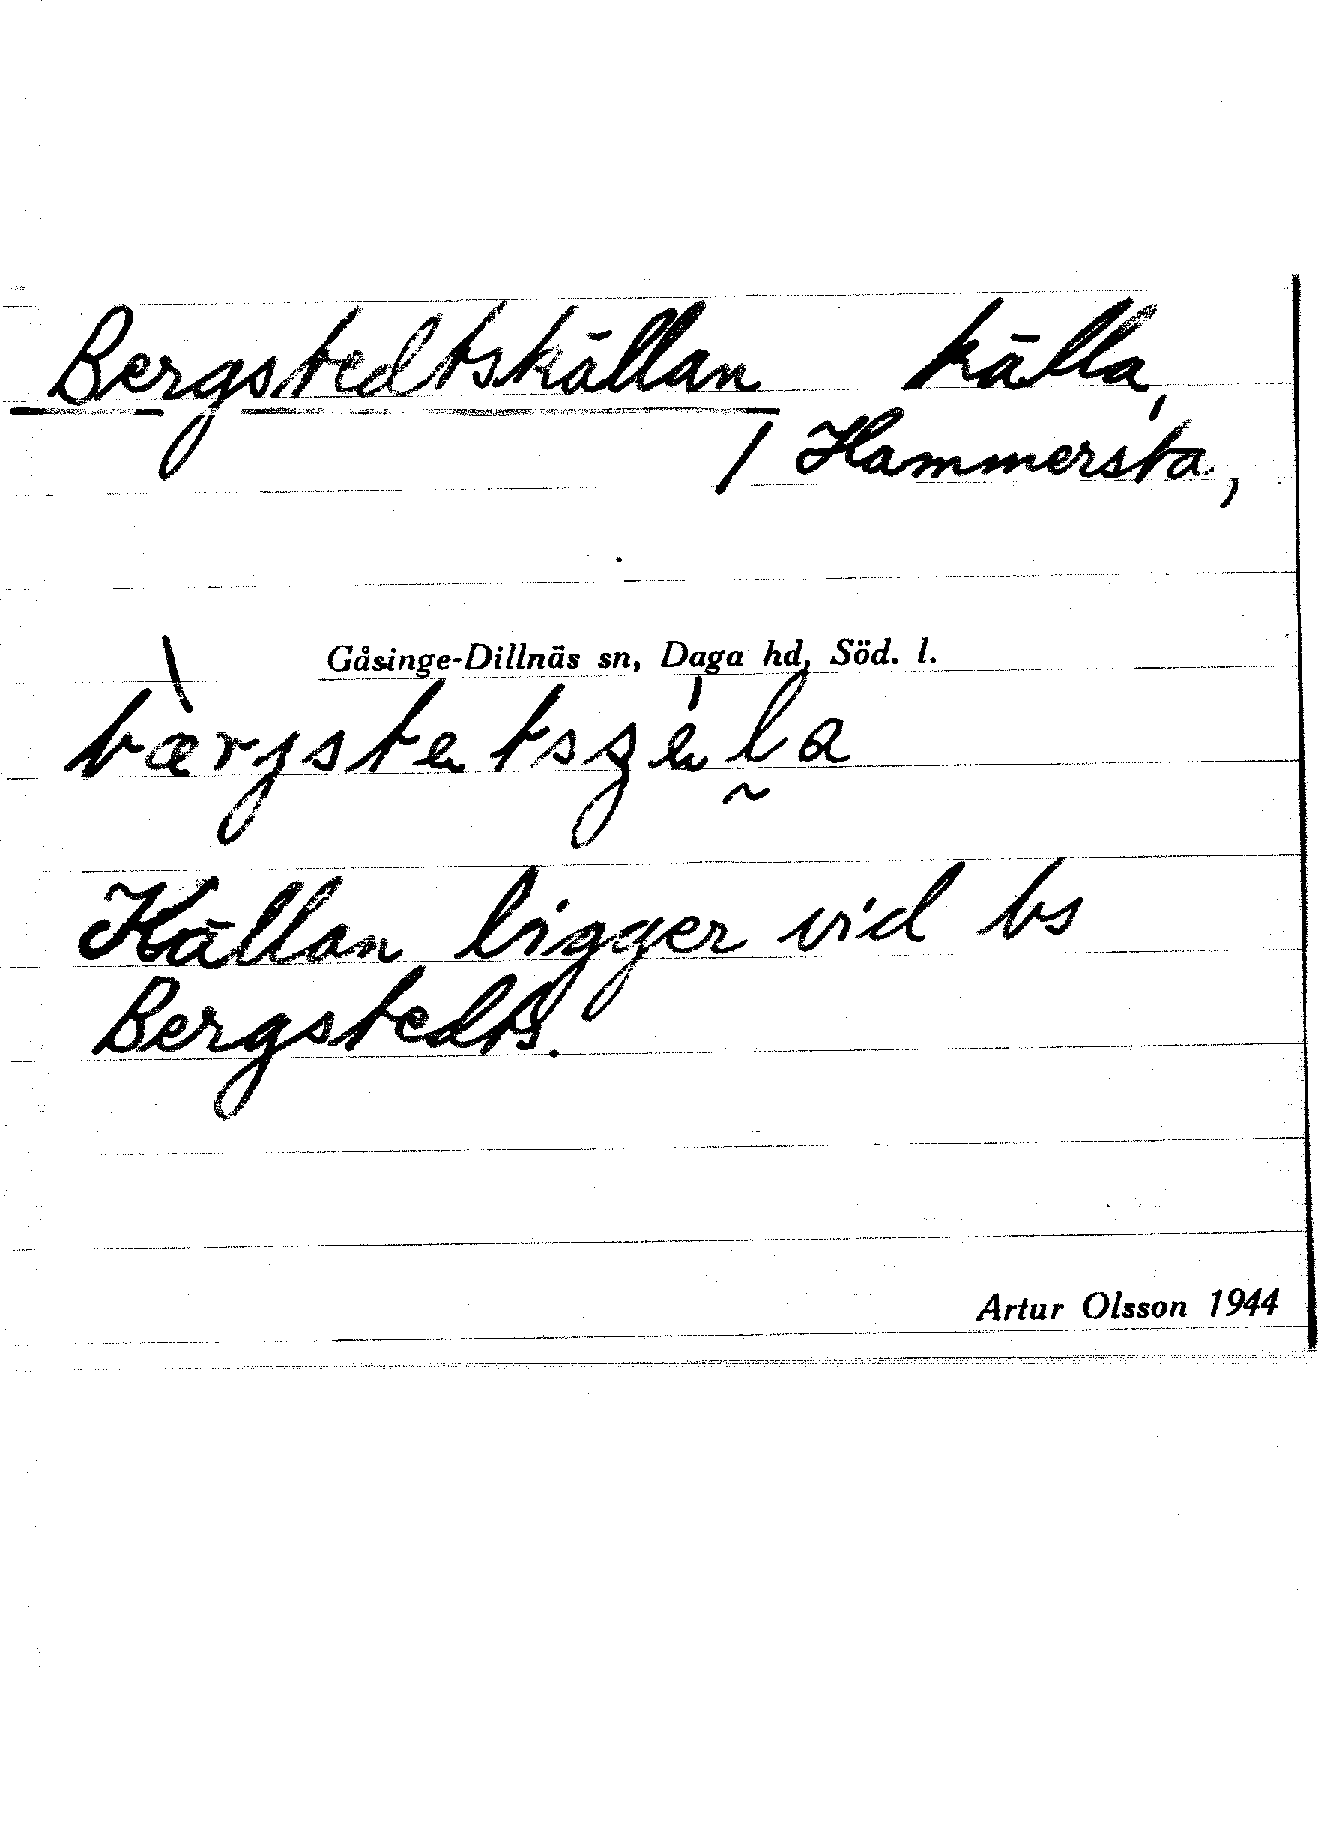 Bergstedtskällan källa,
/ Hammersta,
Gåsinge-Dillnäs sn, Daga hd, Söd. l.
Källan ligger vid bs
Bergstedts.
Artur Olsson 1944